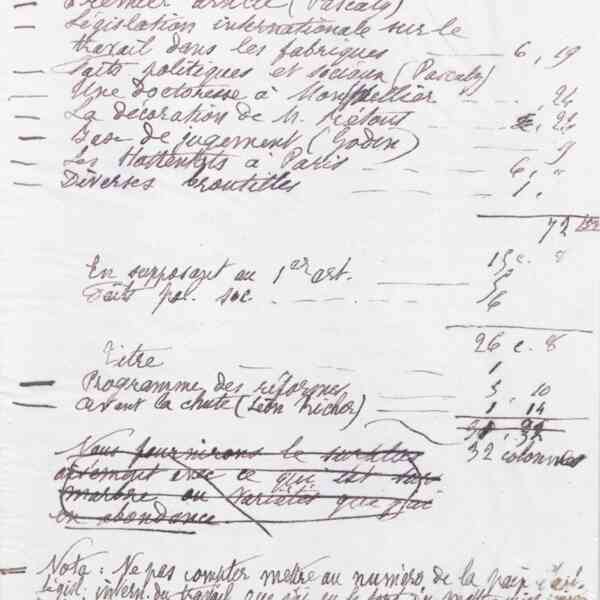 Premier article (Pascaly)
Législation internationale sur le
travail dans les fabriques 6, 19
Faits politiques et sociaux (Pascaly)
Une doctoresse à Montpellier 24
La décoration de M.
de jugement (Godin) 9
Les à Paris 6, "
Diverses broutilles 1, "
72
En supposant au 1er art. 15 c. 8
Faits pol. soc. 6
26 c. 8
Titre 1
Programme des réformes 3 " 10
avant la chute (Léon Richer) 1 " 14
32 colonnes
Nous fournirons le surplus
aisément avec ce qui est sur
marbre ou variétés que j'ai
en abondance.
Nota : Ne pas compter mettre au numéro de la paix
Législ. intern. du travail que